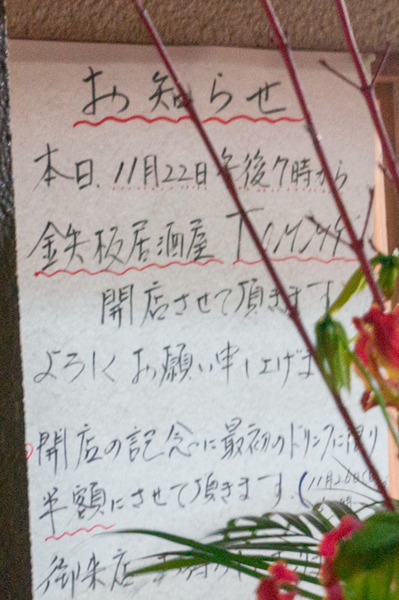 お知らせ
本日、11月22日午後7時から
鉄板居酒屋
開店させて頂きます
よろしくお願い申し上げま
開店の記念に最初のドリンクに限り
半額にさせて頂きます。(11月26日
御来店